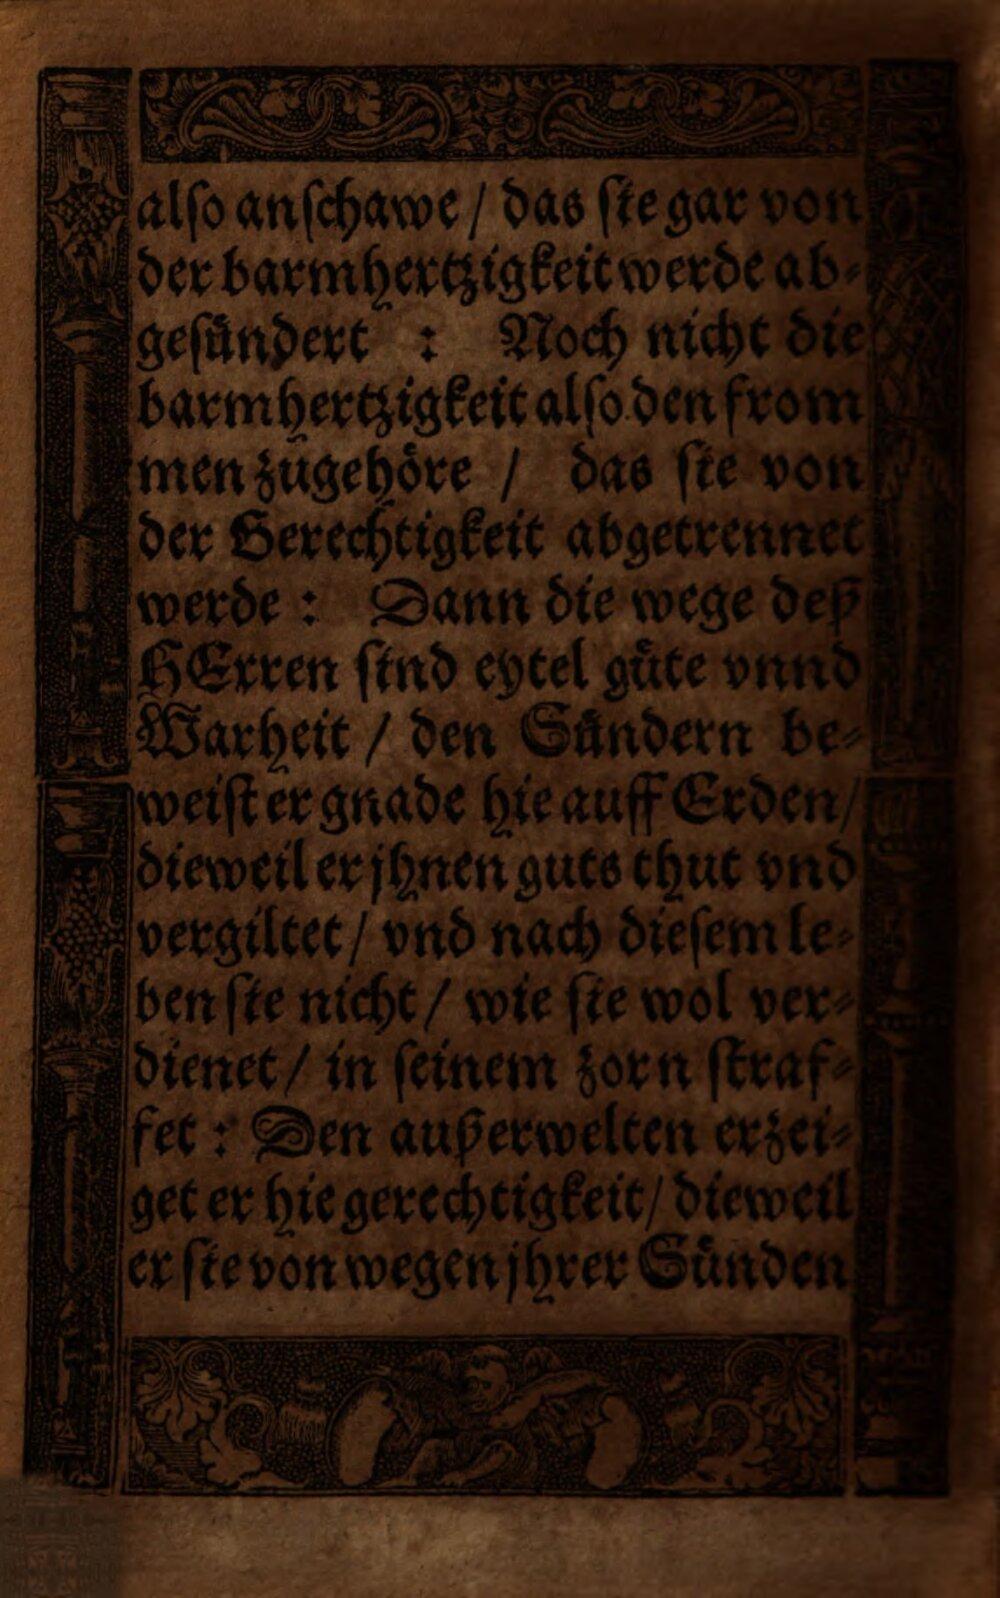 also anschawe / das sie gar von
der barmhertzigkeit werde ab-
gesündert : Noch nicht die
barmhertzigkeit also den from
men zugehöre / das sie von
der Gerechtigkeit abgetrennet
werde : Dann die wege deß
HErren sind eytel güte vnnd
Warheit / den Sündern be-
weist er gnade hie auff Erden /
dieweil er jhnen guts thut vnd
vergiltet / vnd nach diesem le-
ben sie nicht / wie sie wol ver-
dienet / in seinem zorn straf-
fet : Den außerwelten erzei-
get er hie gerechtigkeit / dieweil
er sie von wegen jhrer Sünden